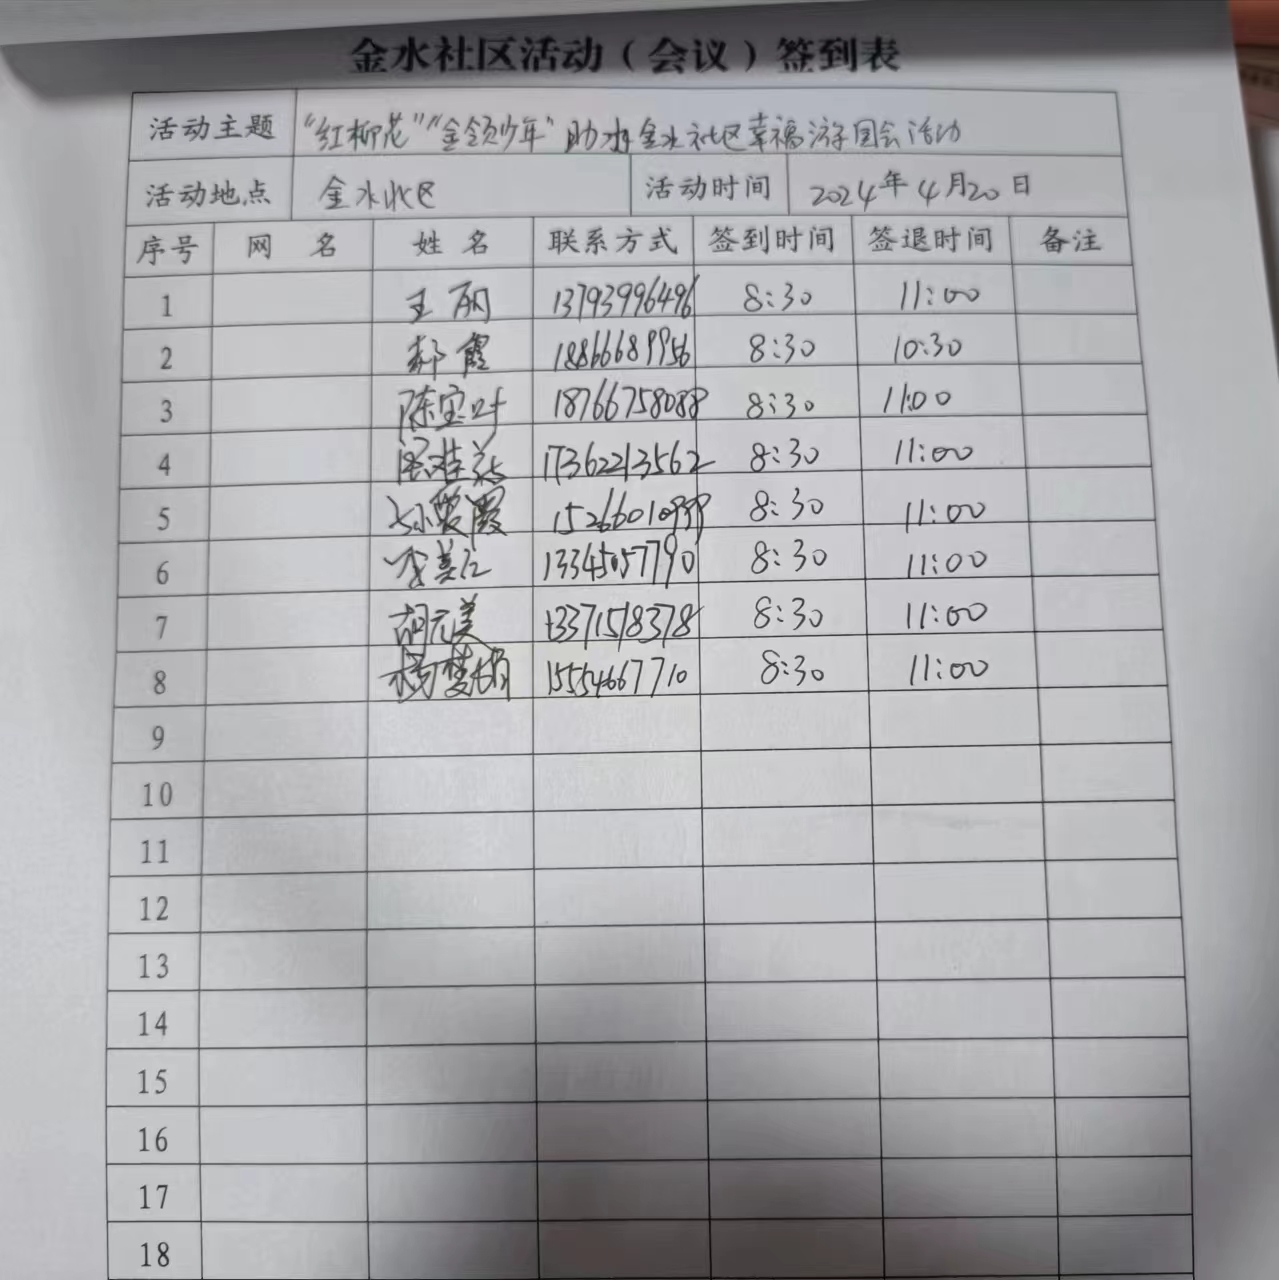 金水社区活动（会议）签到表
活动主题 "红柳花""金领少年"助力金水社区幸福游园会活动
活动地点 金水社区 活动时间 2024年4月20日
序号 网名 姓名 联系方式 签到时间 签退时间 备注
1 王丽 13793996496 8:30 11:00
2 郝霞 18866689956 8:30 10:30
3 陈宝叶 18766758088 8:30 11:00
4 17362213562 8:30 11:00
5 8:30 11:00
6 13345057790 8:30 11:00
7 胡元美 13371518378 8:30 11:00
8 杨梦娟 15554667710 8:30 11:00
9
10
11
12
13
14
15
16
17
18